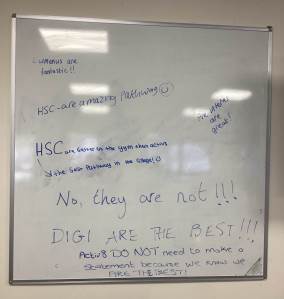 are
fantastic!!
HSC - are amazing Pathway
are
great!
HSC are faster in the gym than active
the Best Pathway in the College!
No, they are not!!!
DIGI ARE THE BEST!!!
Activ8 DO NOT need to make a
statement because we know we
ARE THE BEST!